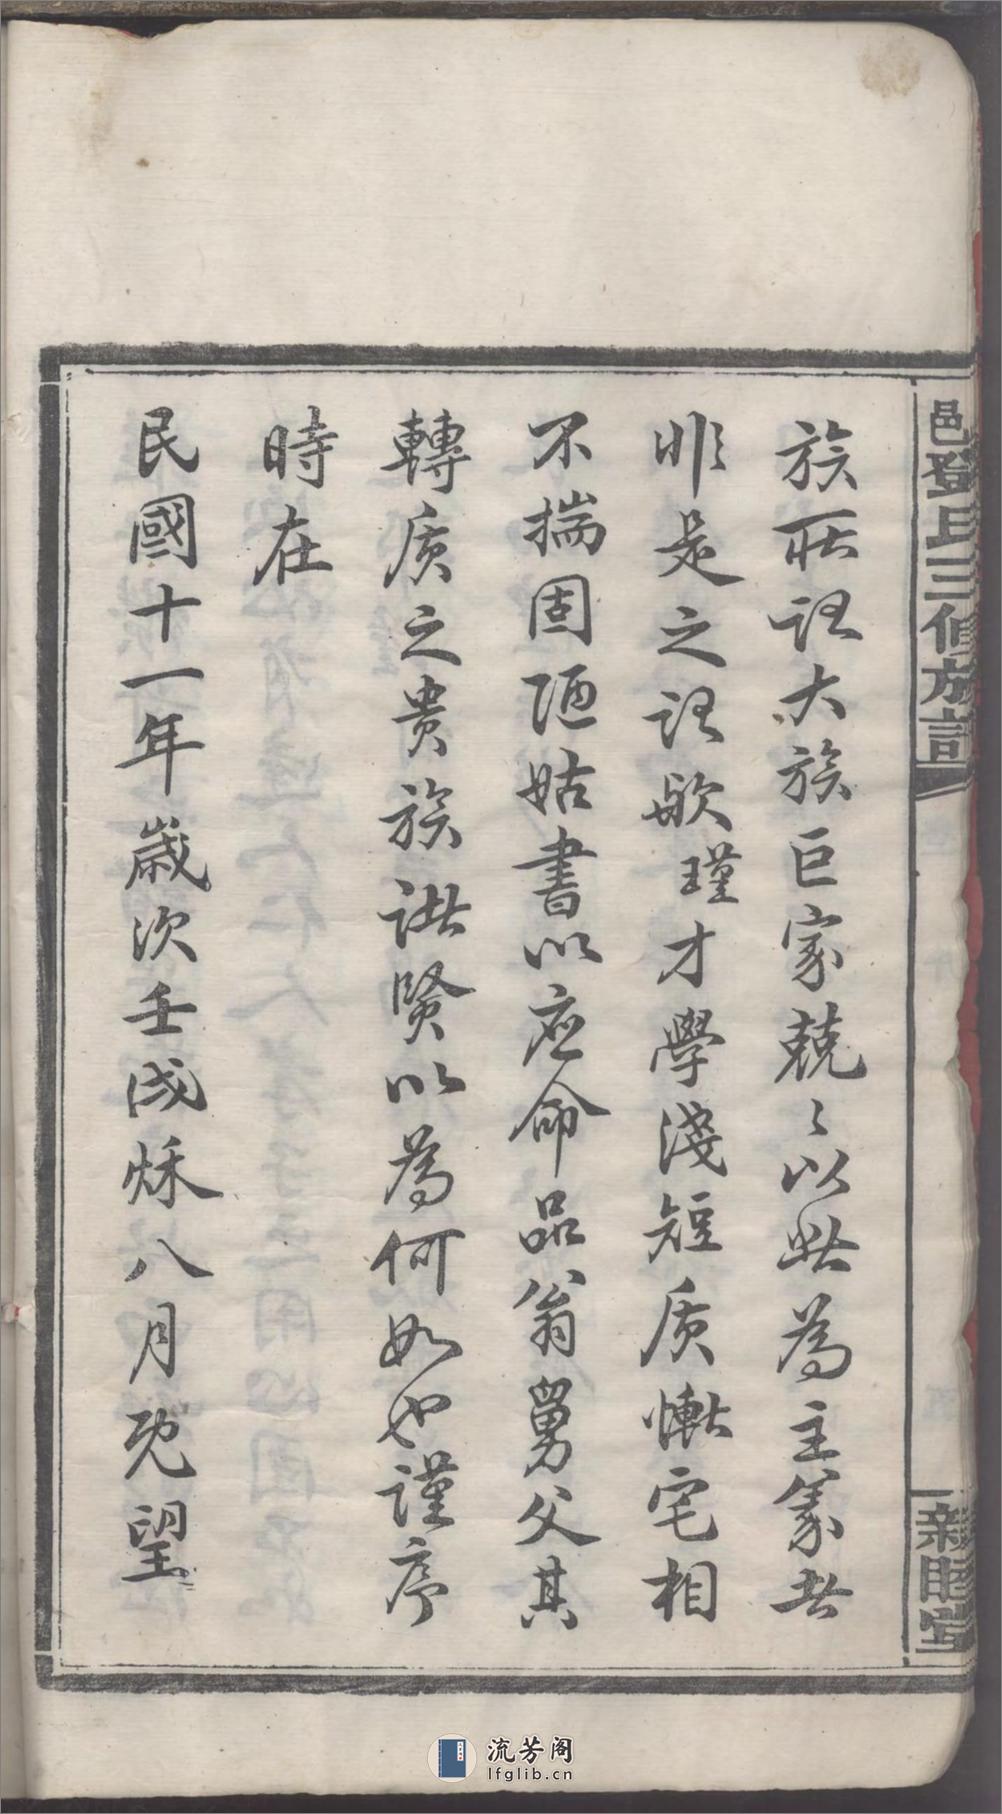 邑登氏三修族譜
親睦堂
族所謂大族巨家兢〻以此為主篆者
非是之謂歟瑾才學淺短质慚宅相
不揣固陋姑書以应命品翁舅父其
轉质之贵族諸賢以為何如也謹序
時在
民國十一年歲次壬戌秌八月既望
流芳阁
lfglib.cn